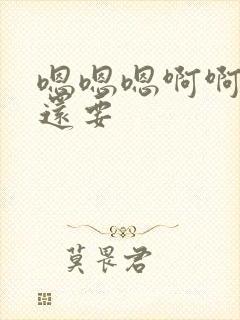 嗯嗯嗯啊啊
還要
莫畏君